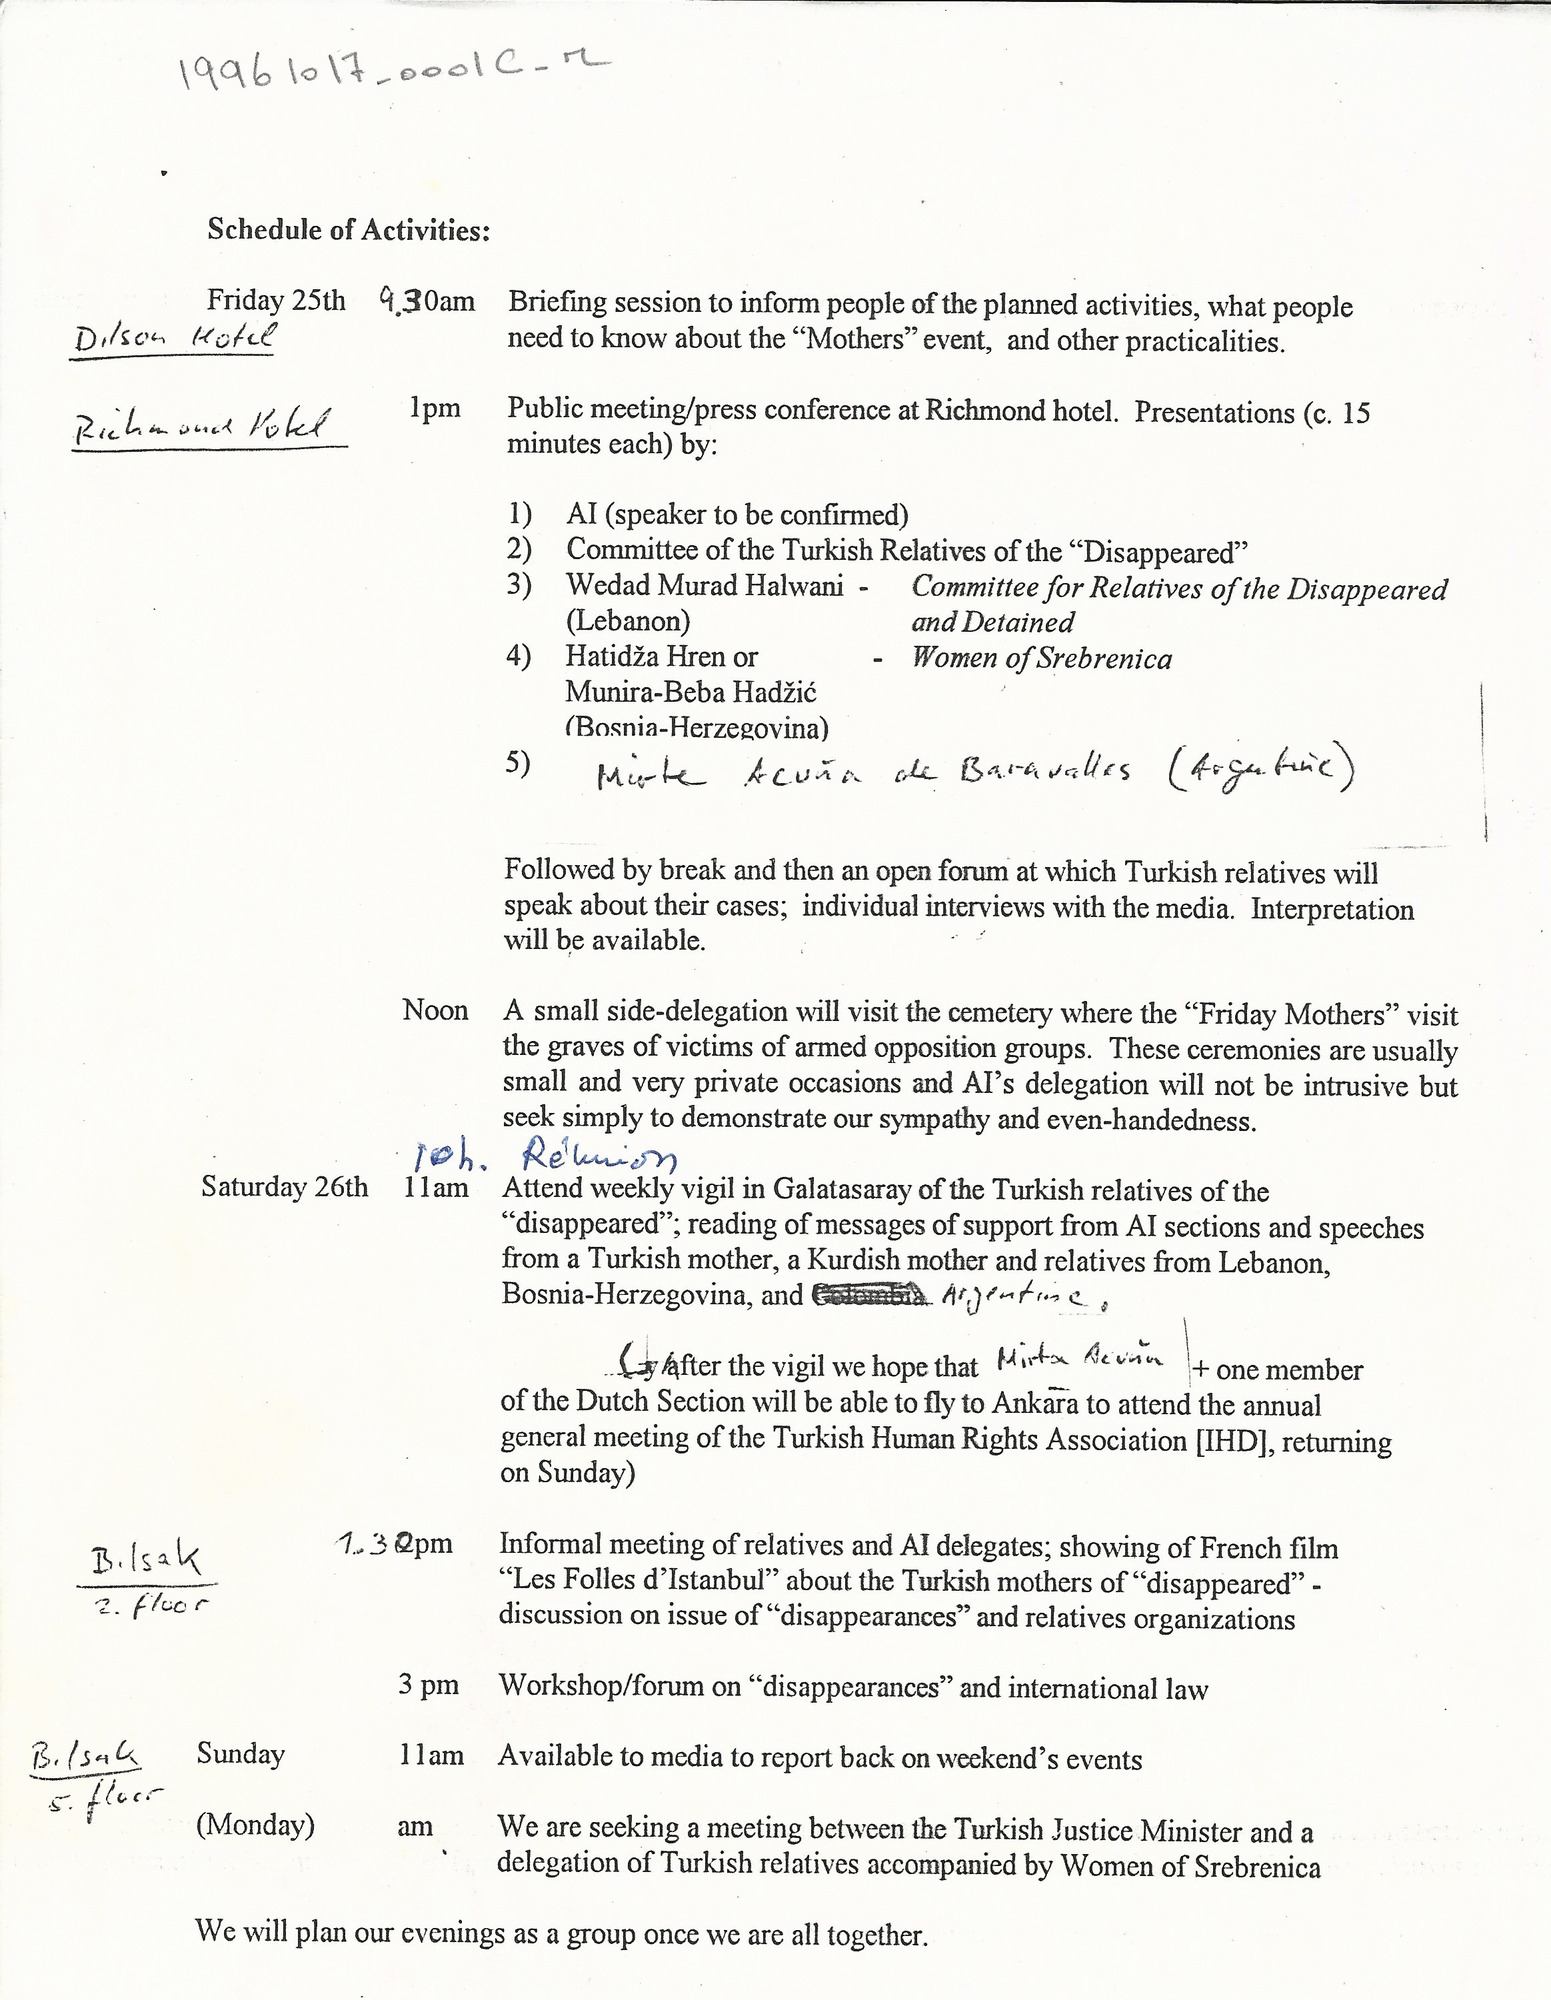 19961017_0001C_r
Schedule of Activities:
Friday 25th 9.30am Briefing session to inform people of the planned activities, what people
Dilson Hotel need to know about the “Mothers” event, and other practicalities.
Richmond Hotel 1pm Public meeting/press conference at Richmond hotel. Presentations (c. 15
minutes each) by:
1) AI (speaker to be confirmed)
2) Committee of the Turkish Relatives of the “Disappeared”
3) Wedad Murad Halwani - Committee for Relatives of the Disappeared
(Lebanon) and Detained
4) Hatidža Hren or - Women of Srebrenica
Munira-Beba Hadžić
(Bosnia-Herzegovina)
5) Mirta Acuña de Baravalles (Argentine)
Followed by break and then an open forum at which Turkish relatives will
speak about their cases; individual interviews with the media. Interpretation
will be available.
Noon A small side-delegation will visit the cemetery where the “Friday Mothers” visit
the graves of victims of armed opposition groups. These ceremonies are usually
small and very private occasions and AI’s delegation will not be intrusive but
seek simply to demonstrate our sympathy and even-handedness.
10h. Réunion
Saturday 26th 11am Attend weekly vigil in Galatasaray of the Turkish relatives of the
“disappeared”; reading of messages of support from AI sections and speeches
from a Turkish mother, a Kurdish mother and relatives from Lebanon,
Bosnia-Herzegovina, and Colombia Argentine.
(After the vigil we hope that Mirta Acuña + one member
of the Dutch Section will be able to fly to Ankara to attend the annual
general meeting of the Turkish Human Rights Association [IHD], returning
on Sunday)
Bilsak 1.30pm Informal meeting of relatives and AI delegates; showing of French film
2. floor “Les Folles d’Istanbul” about the Turkish mothers of “disappeared” -
discussion on issue of “disappearances” and relatives organizations
3 pm Workshop/forum on “disappearances” and international law
Bilsak Sunday 11am Available to media to report back on weekend’s events
5. floor
(Monday) am We are seeking a meeting between the Turkish Justice Minister and a
delegation of Turkish relatives accompanied by Women of Srebrenica
We will plan our evenings as a group once we are all together.